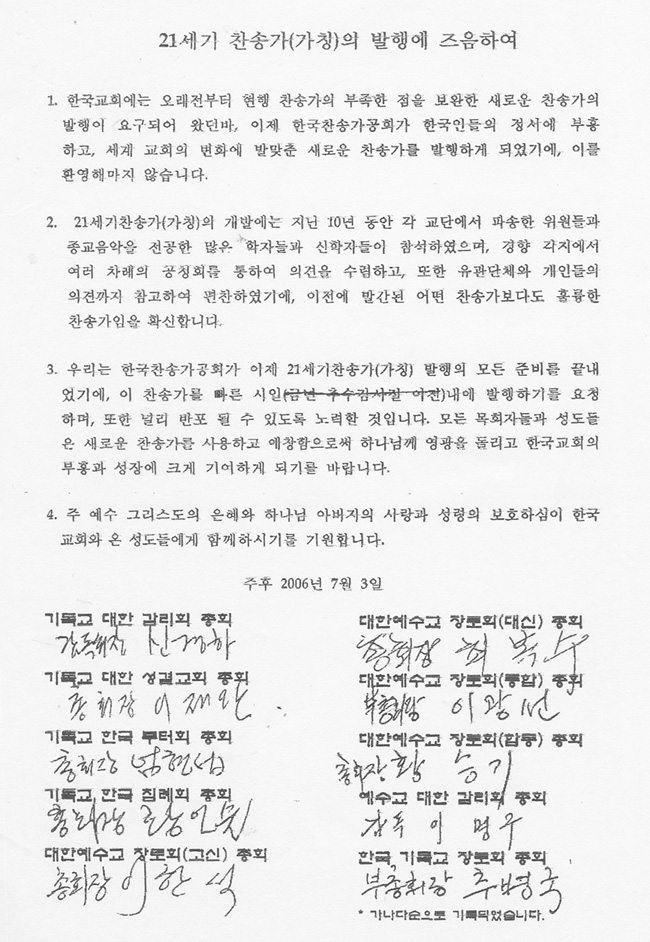 21세기 찬송가(가칭)의 발행에 즈음하여
1. 한국교회에는 오래전부터 현행 찬송가의 부족한 점을 보완한 새로운 찬송가의
발행이 요구되어 왔던바, 이제 한국찬송가공회가 한국인들의 정서에 부흥
하고, 세계 교회의 변화에 발맞춘 새로운 찬송가를 발행하게 되었기에, 이를
환영해마지 않습니다.
2. 21세기찬송가(가칭)의 개발에는 지난 10년 동안 각 교단에서 파송한 위원들과
종교음악을 전공한 많은 학자들과 신학자들이 참석하였으며, 경향 각지에서
여러 차례의 공청회를 통하여 의견을 수렴하고, 또한 유관단체와 개인들의
의견까지 참고하여 편찬하였기에, 이전에 발간된 어떤 찬송가보다도 훌륭한
찬송가임을 확신합니다.
3. 우리는 한국찬송가공회가 이제 21세기찬송가(가칭) 발행의 모든 준비를 끝내
었기에, 이 찬송가를 빠른 시일(금년 추수감사절 이전)내에 발행하기를 요청
하며, 또한 널리 반포 될 수 있도록 노력할 것입니다. 모든 목회자들과 성도들
은 새로운 찬송가를 사용하고 애창함으로써 하나님께 영광을 돌리고 한국교회의
부흥과 성장에 크게 기여하게 되기를 바랍니다.
4. 주 예수 그리스도의 은혜와 하나님 아버지의 사랑과 성령의 보호하심이 한국
교회와 온 성도들에게 함께하시기를 기원합니다.
주후 2006년 7월 3일
기독교 대한 감리회 총회
감독회장 신경하
기독교 대한 성결교회 총회
총회장 이재완
기독교 한국 루터회 총회
총회장
기독교 한국 침례회 총회
총회장
대한예수교 장로회(고신) 총회
총회장 이한석
대한예수교 장로회(대신) 총회
총회장
대한예수교 장로회(통합) 총회
부총회장 이광선
대한예수교 장로회(합동) 총회
총회장 황승기
예수교 대한 감리회 총회
감독 이명구
한국 기독교 장로회 총회
부총회장 추병국
* 가나다순으로 기록되었습니다.